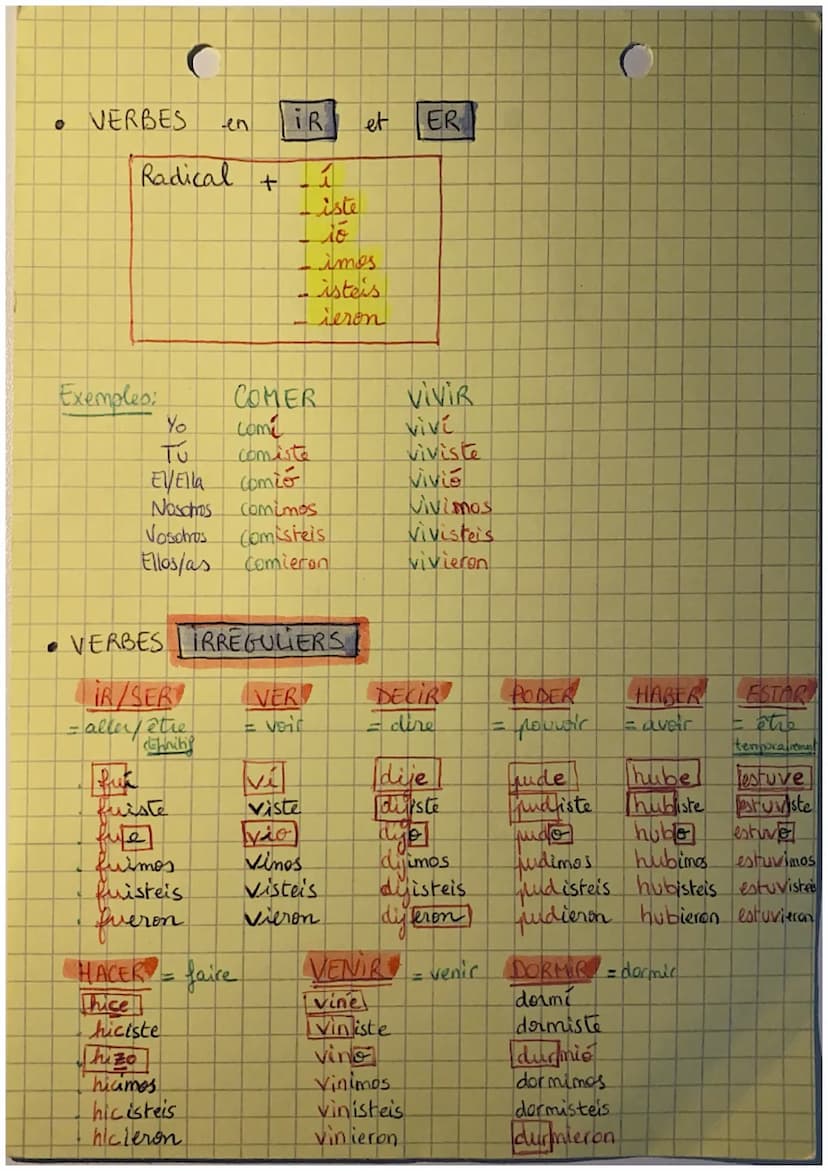 • VERBES en iR et ER
Radical + - í
- iste
- ió
- imos
- isteis
- ieron
Exemples: COMER ViViR
Yo comí viví
Tú comiste viviste
El/Ella comió vivió
Nosotros comimos vivimos
Vosotros comisteis vivisteis
Ellos/as comieron vivieron
• VERBES iRRÉGULiERS
iR/SER VER DECiR PODER HABER ESTAR
= aller/être définitif = voir = dire = pouvoir = avoir = être temporairement
fui ví dije pude hube estuve
fuiste viste dijiste pudiste hubiste estuviste
fue vio dijo pudo hubo estuvo
fuimos vimos dijimos pudimos hubimos estuvimos
fuisteis visteis dijisteis pudisteis hubisteis estuvisteis
fueron vieron dijeron pudieron hubieron estuvieron
HACER = faire VENiR = venir DORMiR = dormir
hice viné dormí
hiciste viniste dormiste
hizo vinó durmió
hicimos vinimos dormimos
hicisteis vinisteis dormisteis
hicieron vinieron durmieron